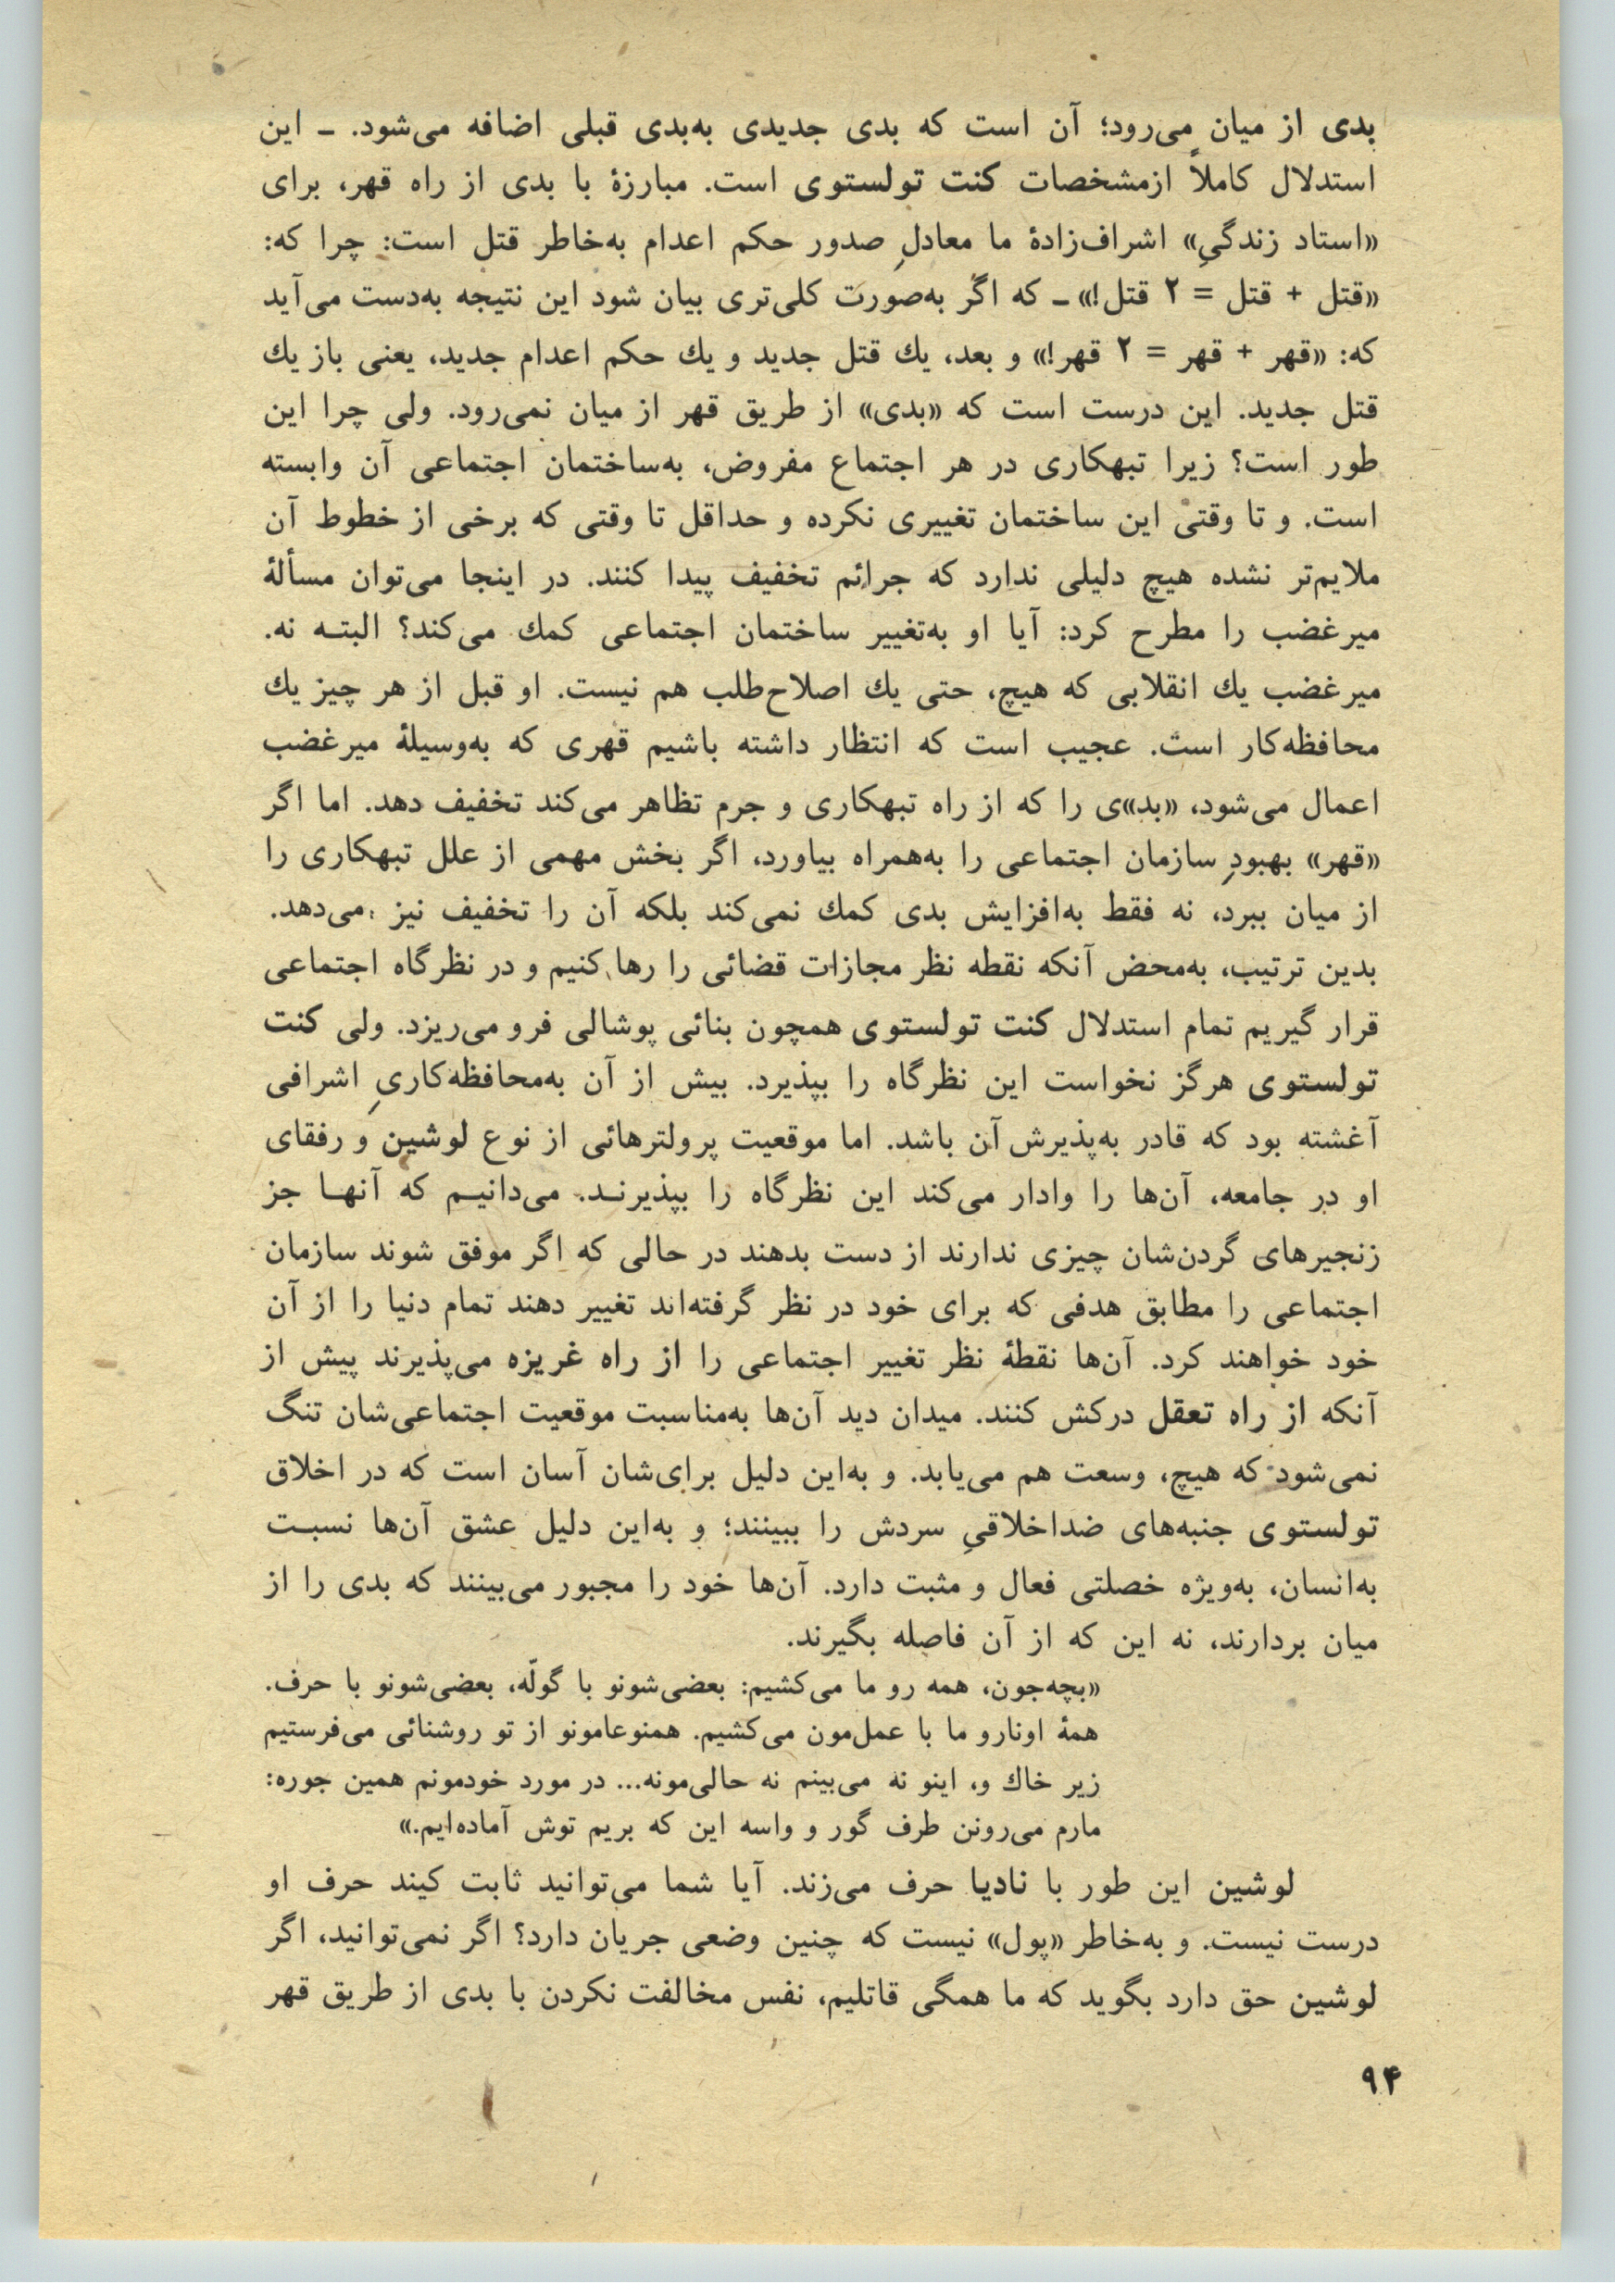 بدی از میان می‌رود؛ آن است که بدی جدیدی به‌بدی قبلی اضافه می‌شود. ـ این
استدلال کاملاً ازمشخصات کنت تولستوی است. مبارزهٔ با بدی از راه قهر، برای
«استاد زندگیِ» اشراف‌زادهٔ ما معادلِ صدور حکم اعدام به‌خاطر قتل است: چرا که:
«قتل + قتل = ۲ قتل!» ـ که اگر به‌صورت کلی‌تری بیان شود این نتیجه به‌دست می‌آید
که: «قهر + قهر = ۲ قهر!» و بعد، یك قتل جدید و یك حکم اعدام جدید، یعنی باز یك
قتل جدید. این درست است که «بدی» از طریق قهر از میان نمی‌رود. ولی چرا این
طور است؟ زیرا تبهکاری در هر اجتماع مفروض، به‌ساختمان اجتماعی آن وابسته
است. و تا وقتی این ساختمان تغییری نکرده و حداقل تا وقتی که برخی از خطوط آن
ملایم‌تر نشده هیچ دلیلی ندارد که جرائم تخفیف پیدا کنند. در اینجا می‌توان مسألهٔ
میرغضب را مطرح کرد: آیا او به‌تغییر ساختمان اجتماعی کمك می‌کند؟ البتـه نه.
میرغضب یك انقلابی که هیچ، حتی یك اصلاح‌طلب هم نیست. او قبل از هر چیز یك
محافظه‌کار است. عجیب است که انتظار داشته باشیم قهری که به‌وسیلهٔ میرغضب
اعمال می‌شود، «بد»ی را که از راه تبهکاری و جرم تظاهر می‌کند تخفیف دهد. اما اگر
«قهر» بهبودِ سازمان اجتماعی را به‌همراه بیاورد، اگر بخش مهمی از علل تبهکاری را
از میان ببرد، نه فقط به‌افزایش بدی کمك نمی‌کند بلکه آن را تخفیف نیز می‌دهد.
بدین ترتیب، به‌محض آنکه نقطه نظر مجازات قضائی را رها کنیم و در نظرگاه اجتماعی
قرار گیریم تمام استدلال کنت تولستوی همچون بنائی پوشالی فرو می‌ریزد. ولی کنت
تولستوی هرگز نخواست این نظرگاه را بپذیرد. بیش از آن به‌محافظه‌کاریِ اشرافی
آغشته بود که قادر به‌پذیرش آن باشد. اما موقعیت پرولترهائی از نوع لوشین و رفقای
او در جامعه، آن‌ها را وادار می‌کند این نظرگاه را بپذیرنـد. می‌دانیـم که آنهـا جز
زنجیرهای گردن‌شان چیزی ندارند از دست بدهند در حالی که اگر موفق شوند سازمان
اجتماعی را مطابق هدفی که برای خود در نظر گرفته‌اند تغییر دهند تمام دنیا را از آن
خود خواهند کرد. آن‌ها نقطهٔ نظر تغییر اجتماعی را از راه غریزه می‌پذیرند پیش از
آنکه از راه تعقل درکش کنند. میدان دید آن‌ها به‌مناسبت موقعیت اجتماعی‌شان تنگ
نمی‌شود که هیچ، وسعت هم می‌یابد. و به‌این دلیل برای‌شان آسان است که در اخلاق
تولستوی جنبه‌های ضداخلاقیِ سردش را ببینند؛ و به‌این دلیل عشق آن‌ها نسبـت
به‌انسان، به‌ویژه خصلتی فعال و مثبت دارد. آن‌ها خود را مجبور می‌بینند که بدی را از
میان بردارند، نه این که از آن فاصله بگیرند.
«بچه‌جون، همه رو ما می‌کشیم: بعضی‌شونو با گولّه، بعضی‌شونو با حرف.
همهٔ اونارو ما با عمل‌مون می‌کشیم. همنوعامونو از تو روشنائی می‌فرستیم
زیر خاك و، اینو نه می‌بینم نه حالی‌مونه... در مورد خودمونم همین جوره:
مارم می‌رونن طرف گور و واسه این که بریم توش آماده‌ایم.»
لوشین این طور با نادیا حرف می‌زند. آیا شما می‌توانید ثابت کیند حرف او
درست نیست. و به‌خاطر «پول» نیست که چنین وضعی جریان دارد؟ اگر نمی‌توانید، اگر
لوشین حق دارد بگوید که ما همگی قاتلیم، نفس مخالفت نکردن با بدی از طریق قهر
۹۴